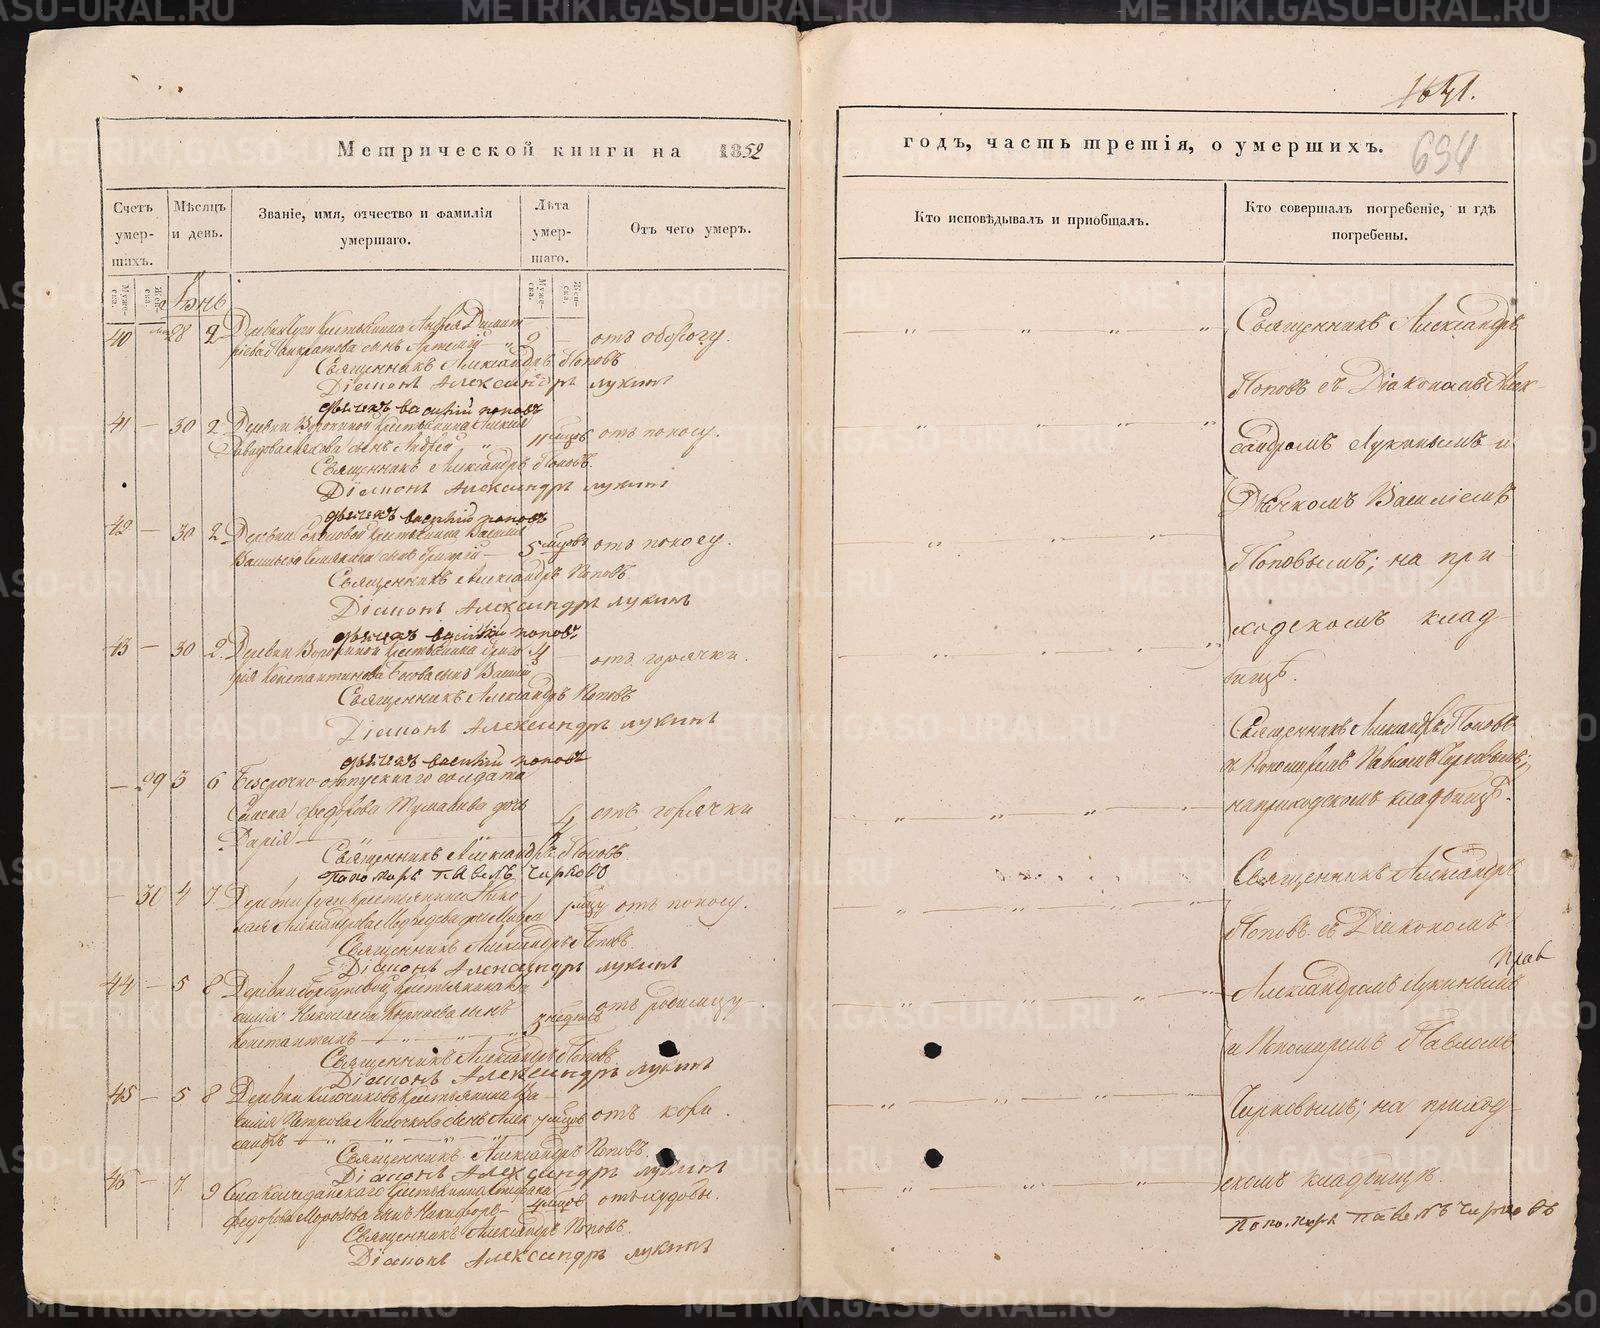 1641.
694
Метрической книги на 1852
годъ, часть третія, о умершихъ.
Счетъ умер-шихъ.
Мѣсяцъ и день.
Званіе, имя, отчество и фамилія умершаго.
Лѣта умер-шаго.
Отъ чего умеръ.
Кто исповѣдывалъ и пріобщалъ.
Кто совершалъ погребеніе, и гдѣ погребены.
Муже-ска.
Жен-ска.
Муже-ска.
Жен-ска.
Іюнь
40 28 2 Андрея Димит
ріева Панкратова сынъ Артемій 2
Священникъ Александръ Поповъ
Діаконъ Александръ Лукинъ
Дьячекъ Василій Поповъ
41 — 30 2 Деревни Ворониной крестьянина
сынъ Андрей 11 мцовъ отъ поносу.
Священникъ Александръ Поповъ.
Діаконъ Александръ Лукинъ
Дьячекъ Василій Поповъ
42 — 30 2 Деревни крестьянина Василія
сынъ Григорій — 5 мцовъ отъ поносу.
Священникъ Александръ Поповъ
Діаконъ Александръ Лукинъ
Дьячекъ Василій Поповъ
43 — 30 2 Деревни Ворониной крестьянина Григо
рія Константинова сынъ Василій 4 — отъ горячки.
Священникъ Александръ Поповъ
Діаконъ Александръ Лукинъ
Дьячекъ Василій Поповъ
— 29 3 6 Безсрочно-отпускнаго солдата
Федорова дочь
Дарія — 4 отъ горячки
Священникъ Александръ Поповъ.
Пономарь Павелъ Чирковъ
— 30 4 7 Деревни крестьянина Нико
лая Александрова Медведева дочь 1 мцу отъ поносу.
Священникъ Александръ Поповъ.
Діаконъ Александръ Лукинъ
44 — 5 8 Деревни крестьянина Ва
силія Николаева сынъ
Константинъ 3 недель отъ родимцу
Священникъ Александръ Поповъ
Діаконъ Александръ Лукинъ
45 — 5 8 Деревни крестьянина Ва-
силія Петрова сынъ Алек
сандръ 7 мцовъ отъ кори.
Священникъ Александръ Поповъ.
Діаконъ Александръ Лукинъ
46 — 7 9 крестьянина Стефана
Федорова Морозова сынъ Никифоръ отъ худобы.
Священникъ Александръ Поповъ.
Діаконъ Александръ Лукинъ
Священникъ Александръ
Поповъ съ Діакономъ Алек-
сандромъ Лукинымъ и
Дьячкомъ Василіемъ
Поповымъ; на при-
ходскомъ клад-
бищѣ.
Священникъ Александръ Поповъ
съ Пономаремъ Павломъ Чирковымъ;
на приходскомъ кладбищѣ.
Священникъ Александръ
Поповъ съ Діакономъ
Александромъ Лукинымъ
и Пономаремъ Павломъ
Чирковымъ; на приход-
скомъ кладбищѣ.
Пономарь Павелъ Чирковъ
METRIKI.GASO-URAL.RU